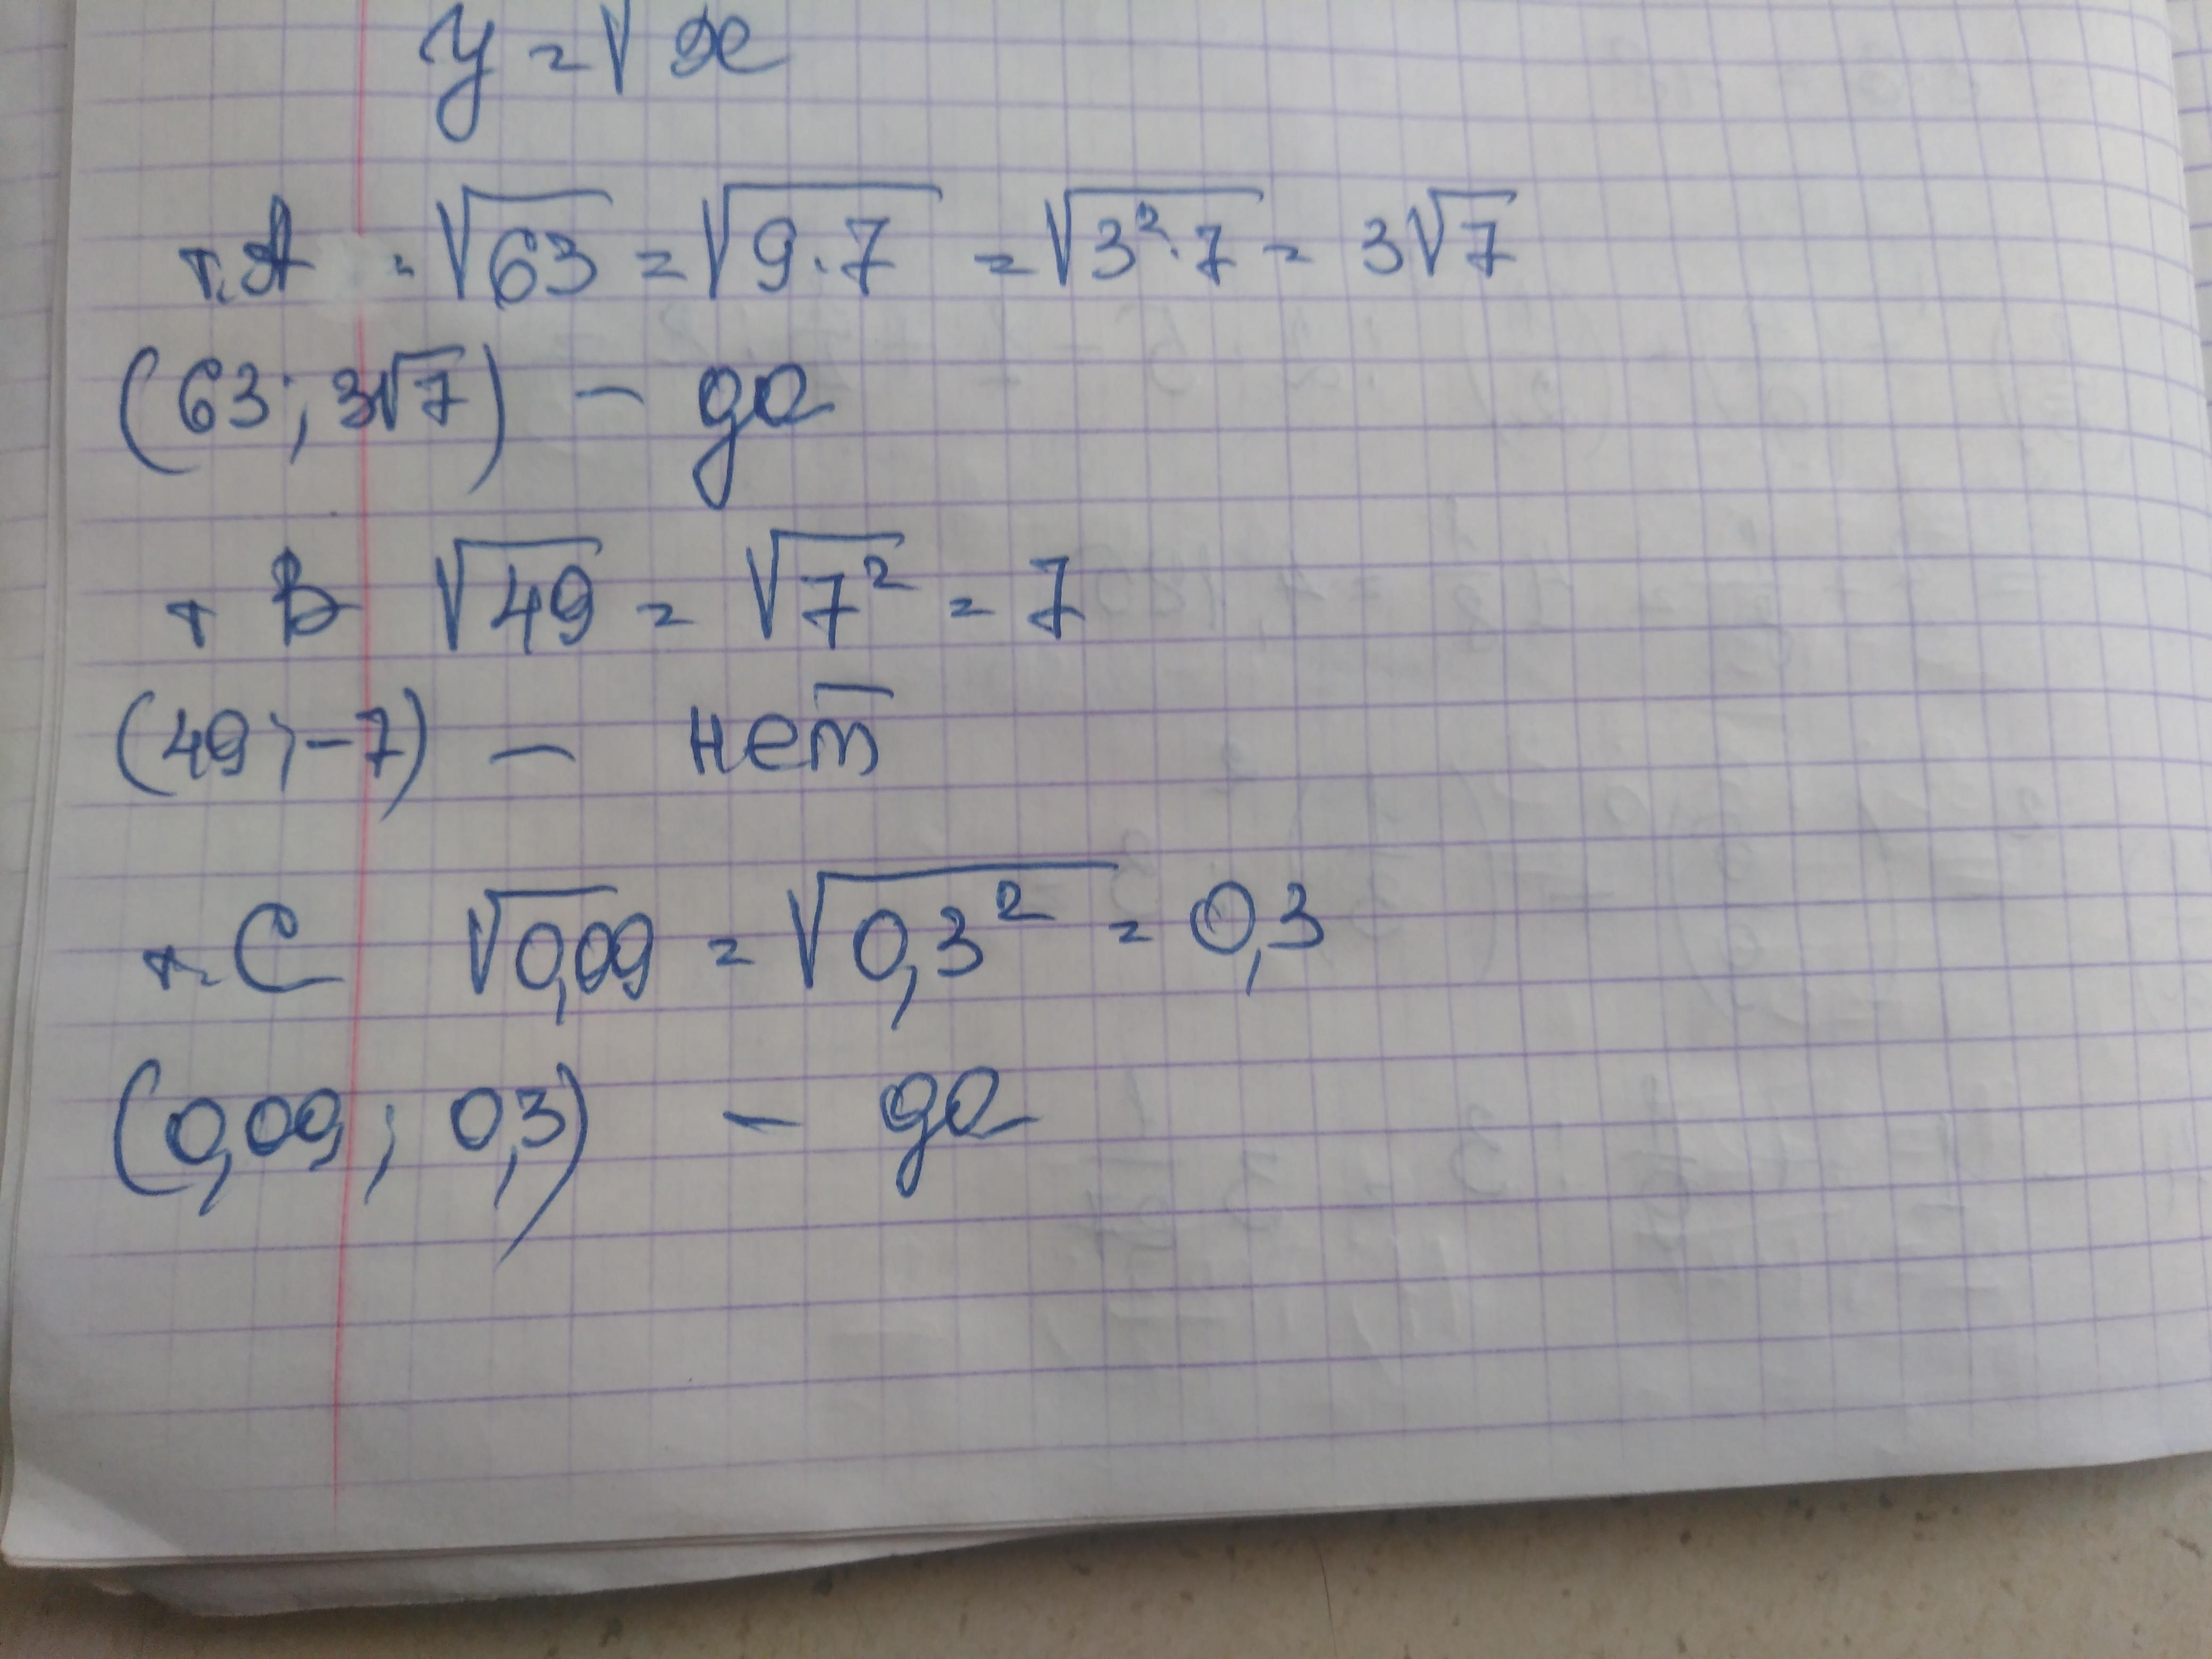 y = √x
т. A = √63 = √9·7 = √3²·7 = 3√7
(63; 3√7) – да
т B √49 = √7² = 7
(49; -7) – нет
т. C √0,09 = √0,3² = 0,3
(0,09; 0,3) – да